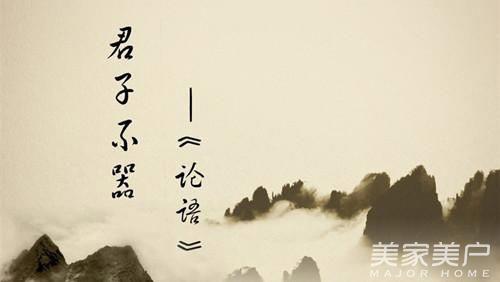 君子不器
—《论语》
美家美户
MAJOR HOME